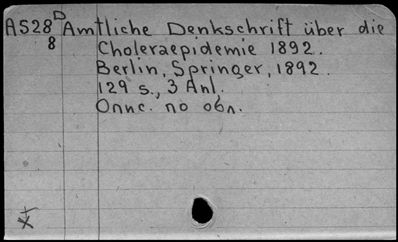 A528 D Amtliche Denkschrift über die
8 Choleraepidemie 1892.
Berlin, Springer, 1892.
129 s., 3 Anl.
Опис. по обл.